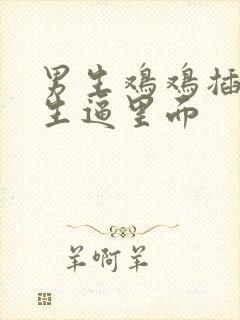 男生鸡鸡插
生逼里而
羊啊羊